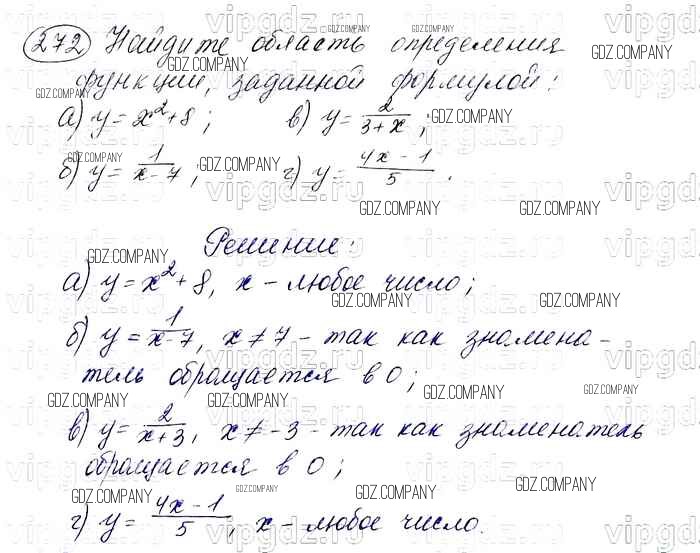 272 Найдите область определения
функции, заданной формулой:
а) y = x² + 8; в) y = 2/(3+x);
б) y = 1/(x-7); г) y = (4x-1)/5.
Решение:
а) y = x² + 8, x - любое число;
б) y = 1/(x-7), x ≠ 7 - так как знамена-
тель обращается в 0;
в) y = 2/(x+3), x ≠ -3 - так как знаменатель
обращается в 0;
г) y = (4x-1)/5, x - любое число.
GDZ.COMPANY
vipgdz.ru